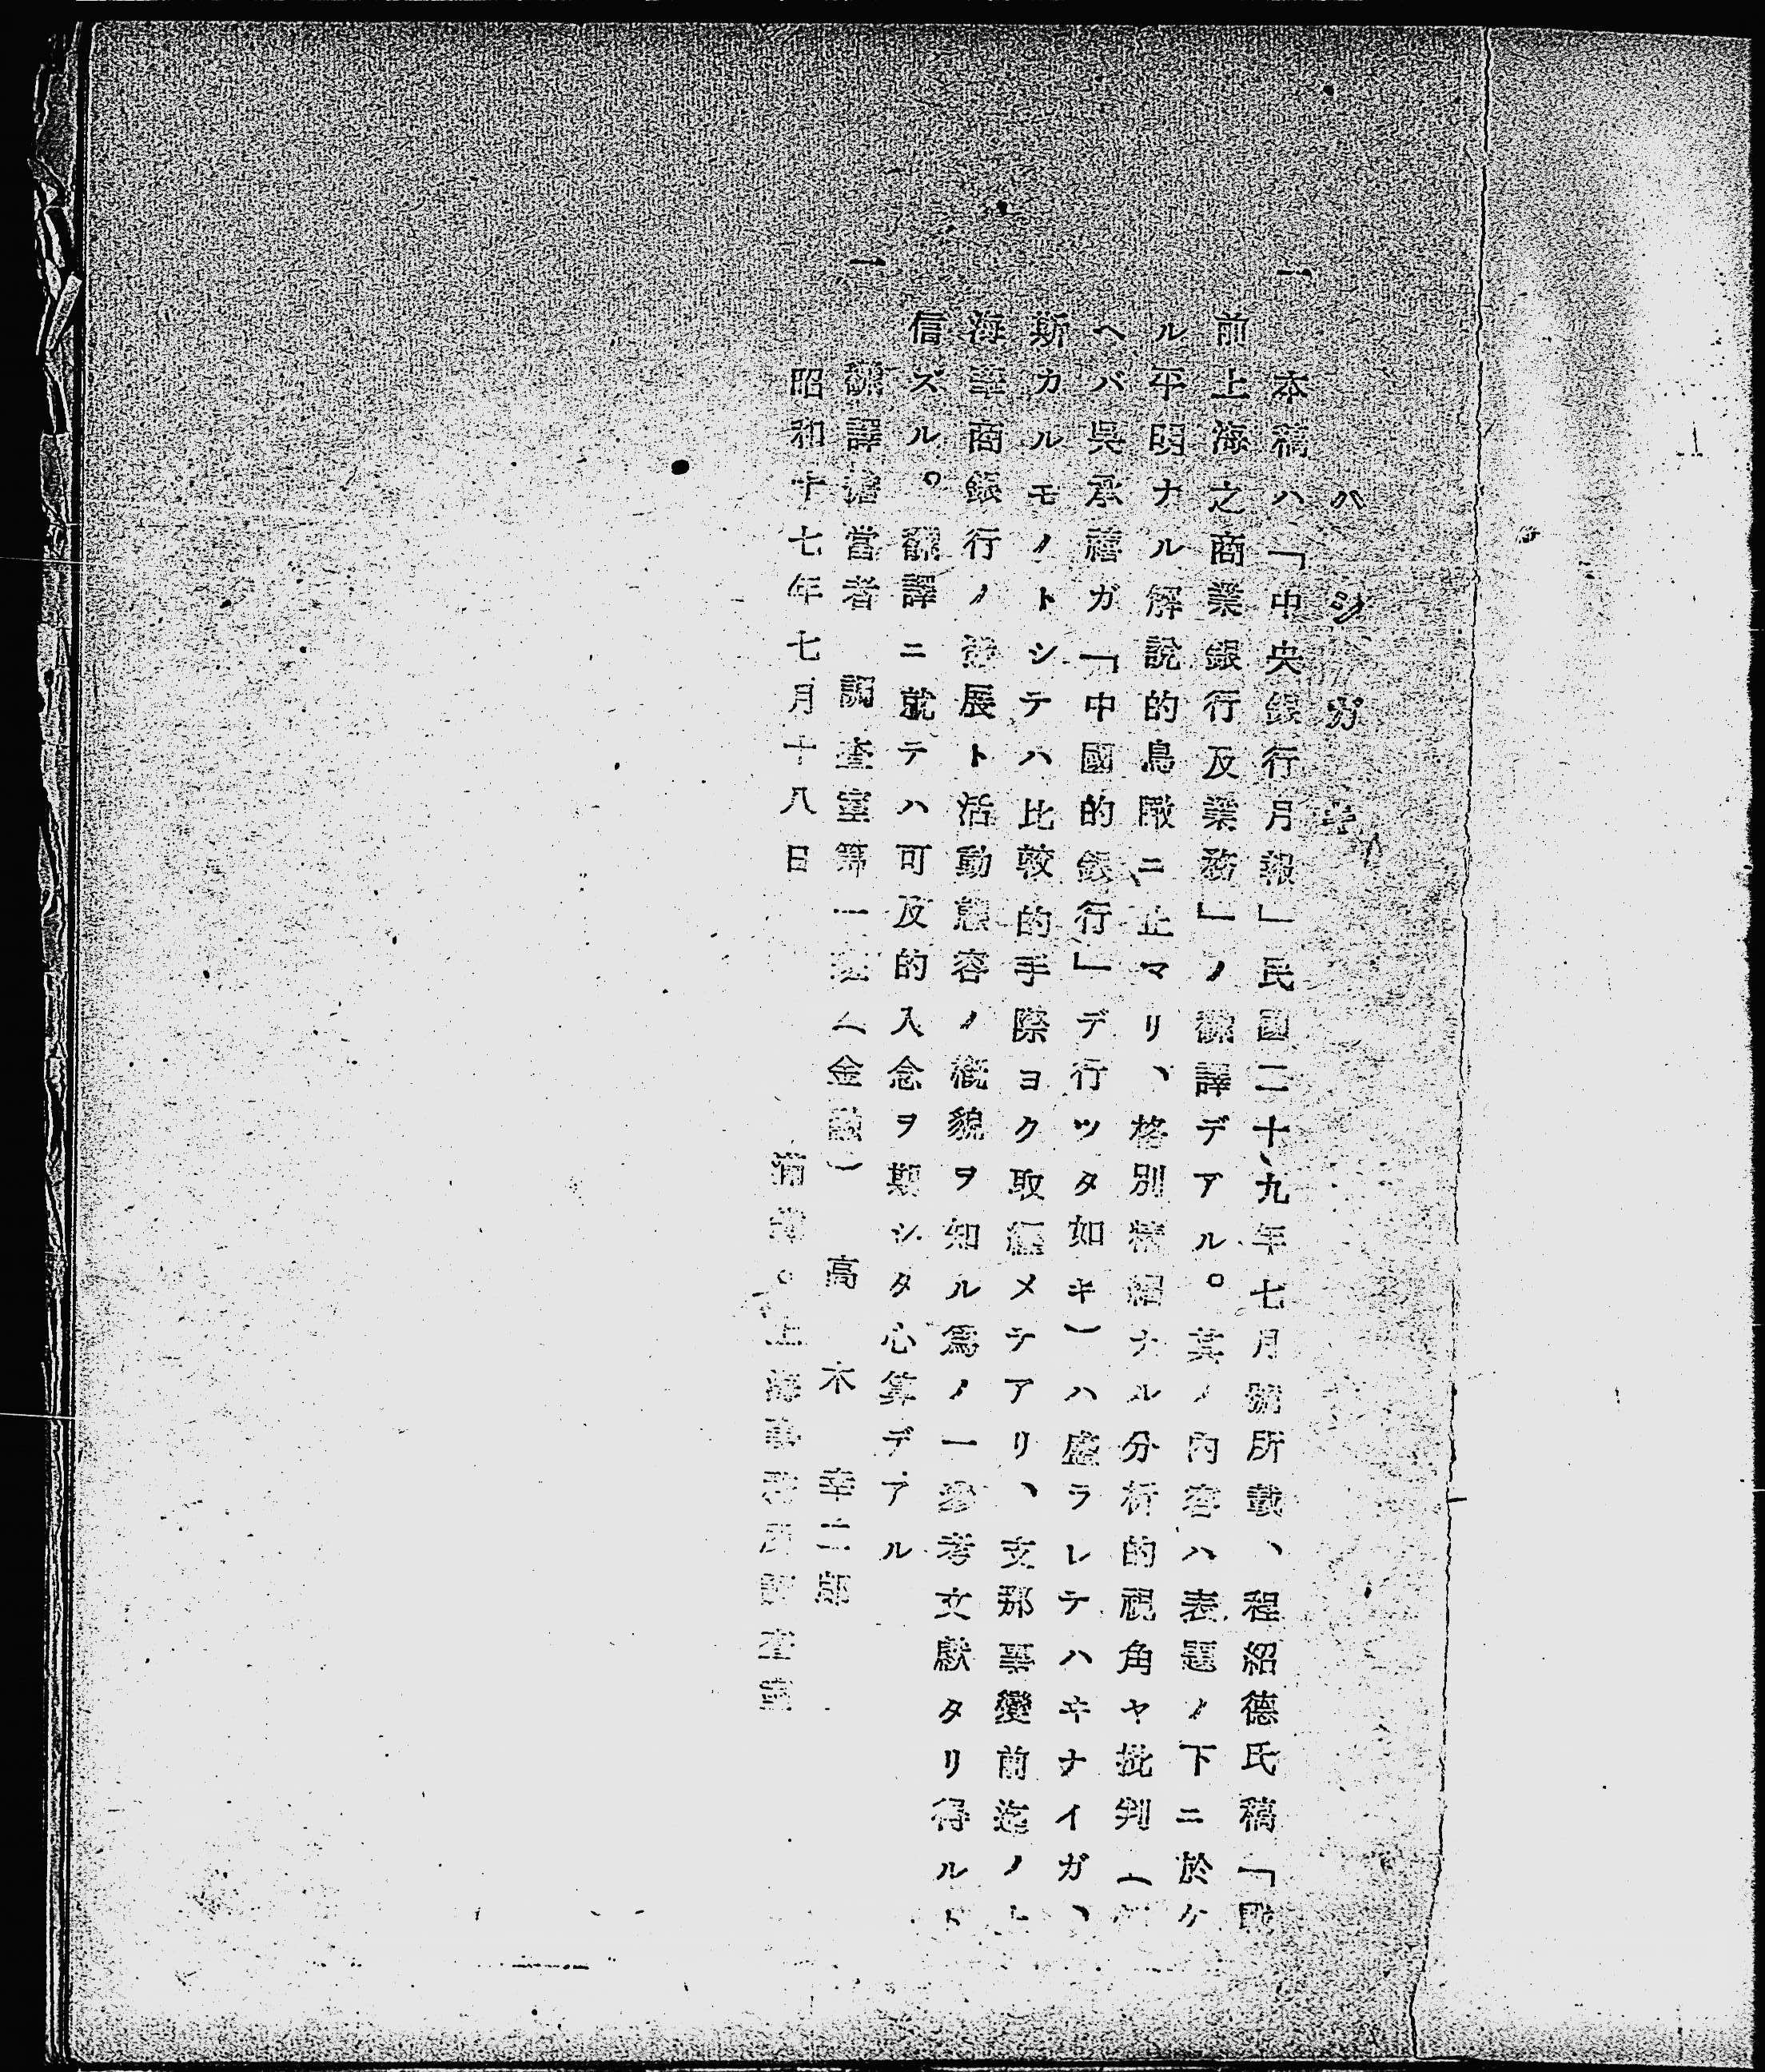 ハシガキ
一
本稿ハ「中央銀行月報」民國二十九年七月號所載、程紹德氏稿「戰
前上海之商業銀行及業務」ノ飜譯デアル。其ノ內容ハ表題ノ下ニ於ケ
ル平明ナル解說的鳥瞰ニ止マリ、格別精細ナル分析的視角ヤ批判(例
ヘバ吳承禧ガ「中國的銀行」デ行ツタ如キ)ハ盛ラレテハヰナイガ、
斯カルモノトシテハ比較的手際ヨク取纒メテアリ、支那事變前迄ノ上
海華商銀行ノ發展ト活動態容ノ槪貌ヲ知ル爲ノ一參考文獻タリ得ルト
信ズル。飜譯ニ就テハ可及的入念ヲ期シタ心算デアル
一
飜譯擔當者 調査室第一係(金融) 高木幸二郎
昭和十七年七月十八日
滿鐵。上海事務所調査室